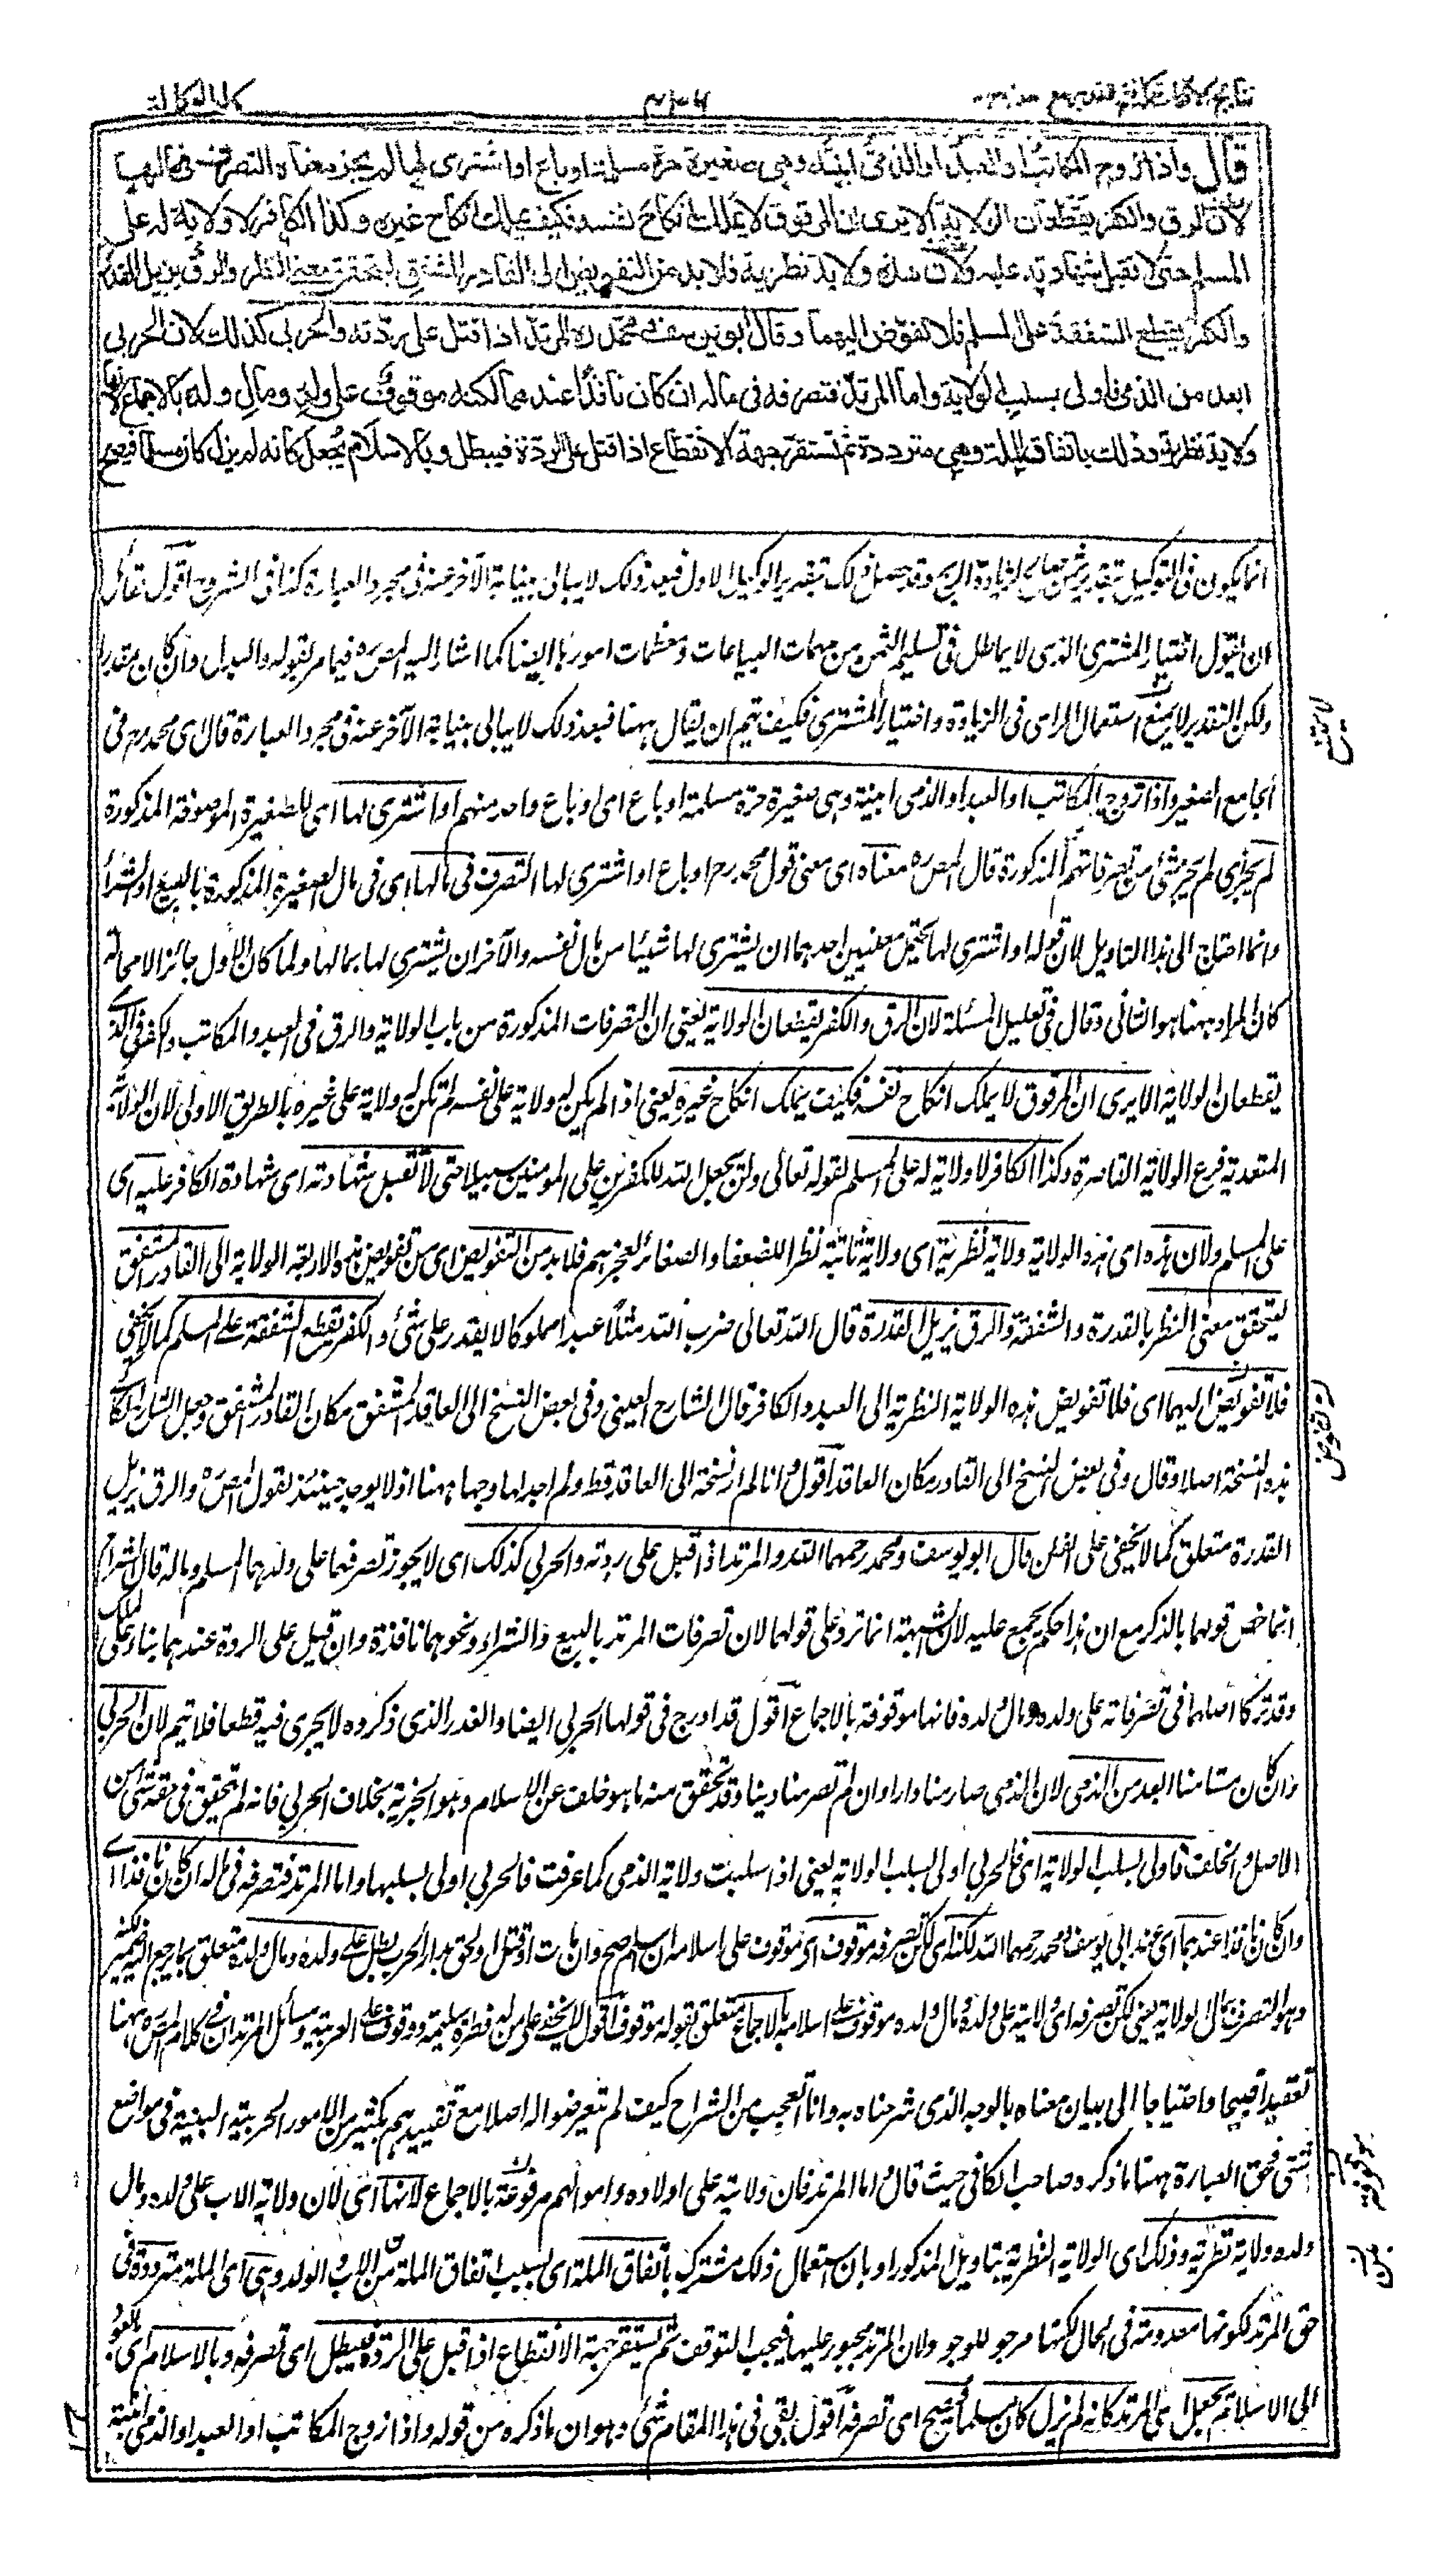 نتایج الافکار تکملة فتح القدیر مع هدایه ٣ ٤٠٦ کتاب الوکالة
قال واذا زوج المکاتب او العبد او الذمی ابنته وهی صغیرة حرة مسلمة او باع او اشتری لها لم یجز معناه التصرف فی مالها
لان الرق والکفر یقطعان الولایة الا یری ان المرقوق لا یملک انکاح نفسه فکیف یملک انکاح غیره وکذا الکافر لا ولایة له علی
المسلم حتی لا تقبل شهادته علیه ولان هذه ولایة نظریة فلا بد من التفویض الی القادر المشفق لیتحقق معنی النظر والرق یزیل القدرة
والکفر یقطع الشفقة علی المسلم فلا تفوض الیهما وقال ابو یوسف ومحمد ره المرتد اذا قتل علی ردته والحربی کذلک لان الحربی
ابعد من الذمی فاولی بسلب الولایة واما المرتد فتصرفه فی ماله ان کان نافذا عندهما لکنه موقوف علی ولده ومال ولده بالاجماع لانها
ولایة نظریة وذلک باتفاق الملة وهی مترددة ثم تستقر جهة الانقطاع اذا قتل علی الردة فیبطل وبالاسلام یجعل کانه لم یزل کان مسلما فیصح
انما یکون فی التوکیل بتقدیر ثمن صالح لزیادة الربح وقد حصل ذلک بتقدیر الوکیل الاول فبعد ذلک لا یبالی بنیابة الآخر عنه فی مجرد العبارة کذا فی الشروح اقول لقائل
ان یقول اختیار المشتری الذی لا یماطل فی تسلیم الثمن من مهمات البیاعات ومعظمات امورها ایضا کما اشار الیه المصره فیما مر بقوله والبدل وان کان مقدرا
ولکن التقدیر لا یمنع استعمال الرای فی الزیادة واختیار المشتری فکیف یتم ان یقال ههنا فبعد ذلک لا یبالی بنیابة الآخر عنه فی مجرد العبارة قال ای محمد رح فی
الجامع الصغیر واذا زوج المکاتب او العبد او الذمی ابنته وهی صغیرة حرة مسلمة او باع ای او باع واحد منهم او اشتری لها ای للصغیرة الموصوفة المذکورة
لم یجز ای لم یجز شئ من تصرفاتهم المذکورة قال المصره معناه ای معنی قول محمد رح او باع او اشتری لها التصرف فی مالها ای فی مال الصغیرة المذکورة بالبیع او الشراء
وانما احتاج الی هذا التاویل لان قوله او اشتری لها یحتمل معنیین احدهما ان یشتری لها شیئا من مال نفسه والآخر ان یشتری لها بمالها ولما کان الاول جائزا لا محالة
کان المراد ههنا هو الثانی وقال فی تعلیل المسئلة لان الرق والکفر یقطعان الولایة یعنی ان التصرفات المذکورة من باب الولایة والرق فی العبد والمکاتب والکفر فی الذمی
یقطعان الولایة الا یری ان المرقوق لا یملک انکاح نفسه فکیف یملک انکاح غیره یعنی اذا لم یکن له ولایة علی نفسه لم تکن له ولایة علی غیره بالطریق الاولی لان الولایة
المتعدیة فرع الولایة القاصرة وکذا الکافر لا ولایة له علی المسلم لقوله تعالی ولن یجعل الله للکفرین علی المومنین سبیلا حتی لا تقبل شهادته ای شهادة الکافر علیه ای
علی المسلم ولان هذه ای هذه الولایة ولایة نظریة ای ولایة ثابتة نظرا للضعفاء والصغائر لعجزهم فلا بد من التفویض ای من تفویض هذه الولایة الی القادر المشفق
لیتحقق معنی النظر بالقدرة والشفقة والرق یزیل القدرة قال الله تعالی ضرب الله مثلا عبدا مملوکا لا یقدر علی شئ والکفر یقطع الشفقة علی المسلم کما لا یخفی
فلا تفویض الیهما ای فلا تفویض هذه الولایة النظریة الی العبد والکافر قال الشارح العینی وفی بعض النسخ الی العاقد المشفق مکان القادر المشفق وجعل الشارح الکاکی
هذه النسخة اصلا وقال وفی بعض النسخ الی القادر مکان العاقد اقول انا لم ار نسخة الی العاقد قط ولم اجد لها وجها ههنا اذ لا یوجد حینئذ لقول المصره والرق یزیل
القدرة متعلق کما لا یخفی علی الفطن قال ابو یوسف ومحمد رحمهما الله والمرتد اذا قتل علی ردته والحربی کذلک ای لا یجوز تصرفهما علی ولدهما المسلم وماله قال الشراح
انما خص قولهما بالذکر مع ان هذا حکم مجمع علیه لان الشبهة انما ترد علی قولهما لان تصرفات المرتد بالبیع والشراء ونحوهما نافذة وان قتل علی الردة عندهما بناء علی الملک
وقد ترکا اصلهما فی تصرفاته علی ولده ومال ولده فانها موقوفة بالاجماع اقول قد ادرج فی قولهما الحربی ایضا والعذر الذی ذکروه لا یجری فیه قطعا فلا یتم لان الحربی
وان کان مستامنا ابعد من الذمی لان الذمی صار منا دارا وان لم تصر منا دینا وقد تحقق منه ما هو خلف عن الاسلام وهو الجزیة بخلاف الحربی فانه لم یتحقق فی حقه شئ من
الاصل والخلف فاولی بسلب الولایة ای فالحربی اولی بسلب الولایة یعنی اذا سلبت ولایة الذمی کما عرفت فالحربی اولی بسلبها واما المرتد فتصرفه فی ماله ان کان نافذا ای
وان کان نافذا عندهما ای عند ابی یوسف ومحمد رحمهما الله لکنه ای لکن تصرفه موقوف ای موقوف علی اسلامه ان اسلم صح وان مات او قتل او لحق بدار الحرب بطل علی ولده ومال ولده متعلق بما رجع الیه ضمیر لکنه
وهو التصرف بتاویل الولایة یعنی لکن تصرفه ای ولایته علی ولده ومال ولده موقوف علی اسلامه بالاجماع متعلق بقوله موقوف اقول لا یخفی علی من له فطرة سلیمة ووقوف علی العربیة ومسائل المرتد ان فی کلام المصره ههنا
تعقیدا قبیحا واحتیاجا الی بیان معناه بالوجه الذی شرحناه به وانا اتعجب من الشراح کیف لم یتعرضوا له اصلا مع تقییدهم بکثیر من الامور الجزئیة البینة فی مواضع
شتی فحق العبارة ههنا ما ذکره صاحب الکافی حیث قال واما المرتد فان ولایته علی اولاده واموالهم موقوفة بالاجماع لانها ای لان ولایة الاب علی ولده ومال
ولده ولایة نظریة وذلک ای الولایة النظریة بتاویل المذکور او بان استعمال ذلک مشترک باتفاق الملة ای بسبب اتفاق الملة من الاب والولد وهی ای الملة مترددة فی
حق المرتد لکونها معدومة فی الحال لکنها مرجو للوجود ولان المرتد مجبور علیها فیجب التوقف ثم یستقر جهة الانقطاع اذا قتل علی الردة فیبطل ای تصرفه وبالاسلام ای بالعود
الی الاسلام یجعل ای المرتد کانه لم یزل کان مسلما فیصح ای تصرفه اقول بقی فی هذا المقام شئ وهو ان ما ذکره من قوله واذا زوج المکاتب او العبد او الذمی ابنته